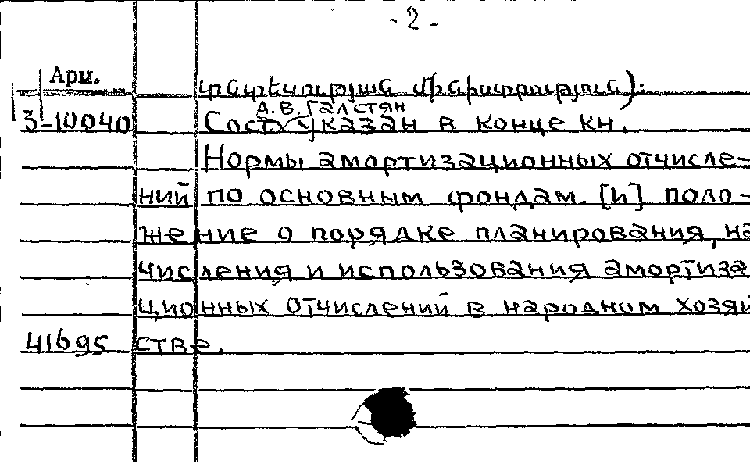 -2-
Арм.
տնտեսության մինիստրություն):
А.В. Галстян
3-10040 Сост. указан в конце кн.
Нормы амортизационных отчисле-
ний по основным фондам [и] поло-
жение о порядке планирования, на
числения и использования амортиза
ционных отчислений в народном хозяй
41695 стве.